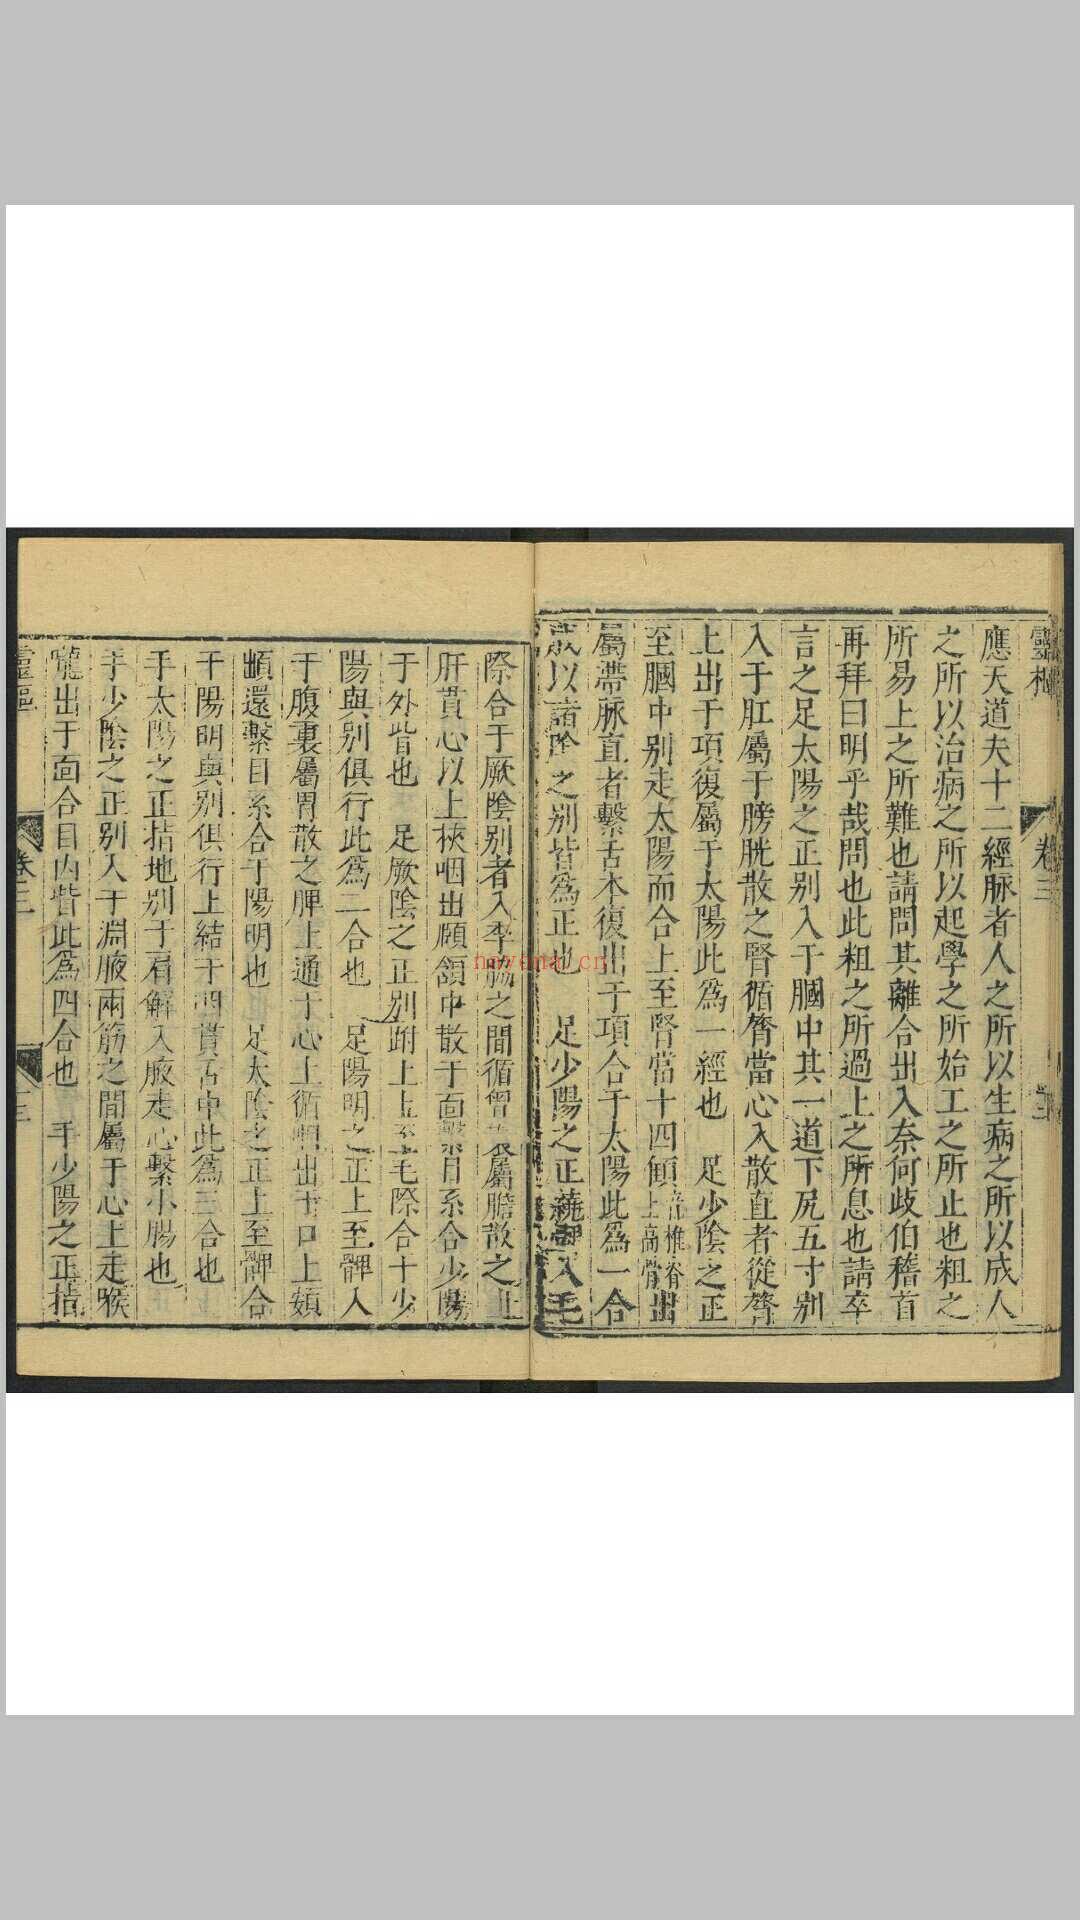 靈樞 卷三
應天道夫十二經脉者人之所以生病之所以成人
之所以治病之所以起學之所始工之所止也粗之
所易上之所難也請問其離合出入奈何歧伯稽首
再拜曰明乎哉問也此粗之所過上之所息也請卒
言之足太陽之正别入于膕中其一道下尻五寸别
入于肛屬于膀胱散之腎循膂當心入散直者從膂
上出于項復屬于太陽此爲一經也 足少陰之正
至膕中别走太陽而合上至腎當十四顀出
屬帶脉直者繫舌本復出于項合于太陽此爲一合
以諸陰之别皆爲正也 足少陽之正繞髀入毛
際合于厥陰别者入季脇之間循胷裏屬膽散之上
肝貫心以上挾咽出頤頷中散于面繫目系合少陽
于外眥也 足厥陰之正别跗上上至毛際合于少
陽與别俱行此爲二合也 足陽明之正上至髀入
于腹裏屬胃散之脾上通于心上循咽出于口上頞
䪼還繫目系合于陽明也 足太陰之正上至髀合
于陽明與别俱行上結于咽貫舌中此爲三合也
手太陽之正指地别于肩解入腋走心繫小腸也
手少陰之正别入于淵腋兩筋之間屬于心上走喉
嚨出于面合目内眥此爲四合也 手少陽之正指
靈樞 卷三 三
novona.cn